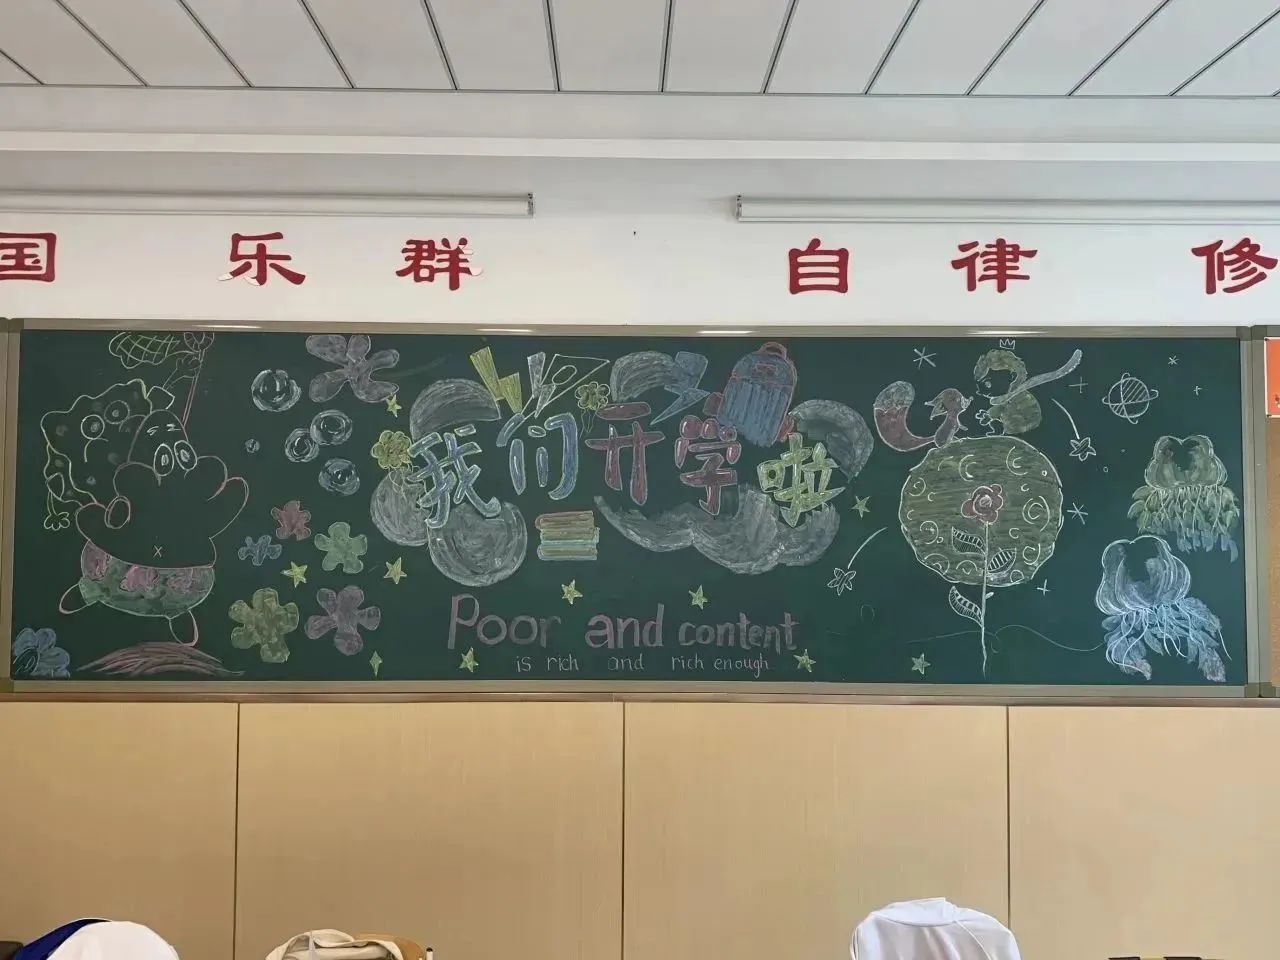 国乐群 自律修
我们开学啦
Poor and content
is rich and rich enough